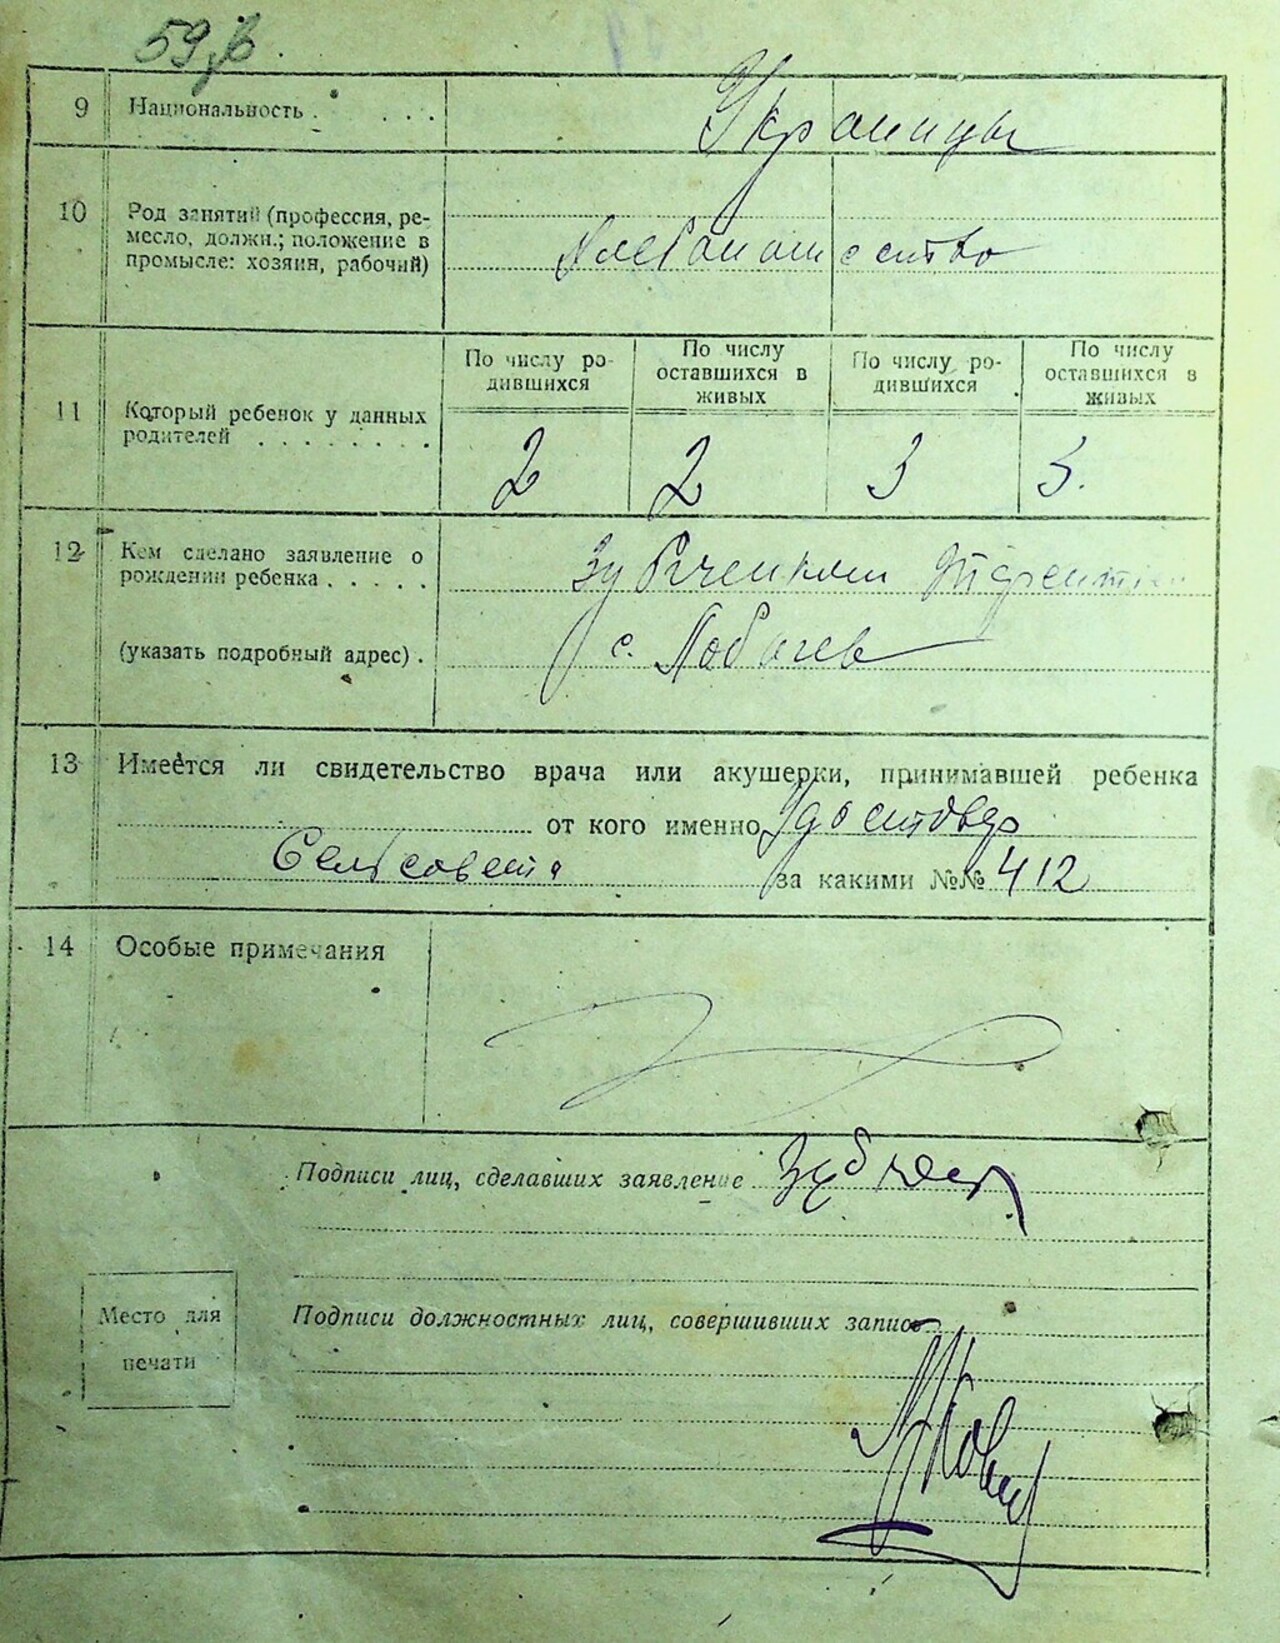 9 Национальность . . . . Украинцы
10 Род занятий (профессия, ре-
месло, должн.; положение в
промысле: хозяин, рабочий)
Хлебопашество
По числу ро-
дившихся
По числу
оставшихся в
живых
По числу ро-
дившихся
По числу
оставшихся в
живых
11 Который ребенок у данных
родителей . . . . . . . .
2 2 3 3.
12 Кем сделано заявление о
рождении ребенка . . . . .
Зубченком
(указать подробный адрес) . с. Лобачев
13 Имеется ли свидетельство врача или акушерки, принимавшей ребенка
от кого именно Удостовер
Сельсовета за какими №№ 412
14 Особые примечания
Подписи лиц, сделавших заявление
Место для
печати
Подписи должностных лиц, совершивших запись